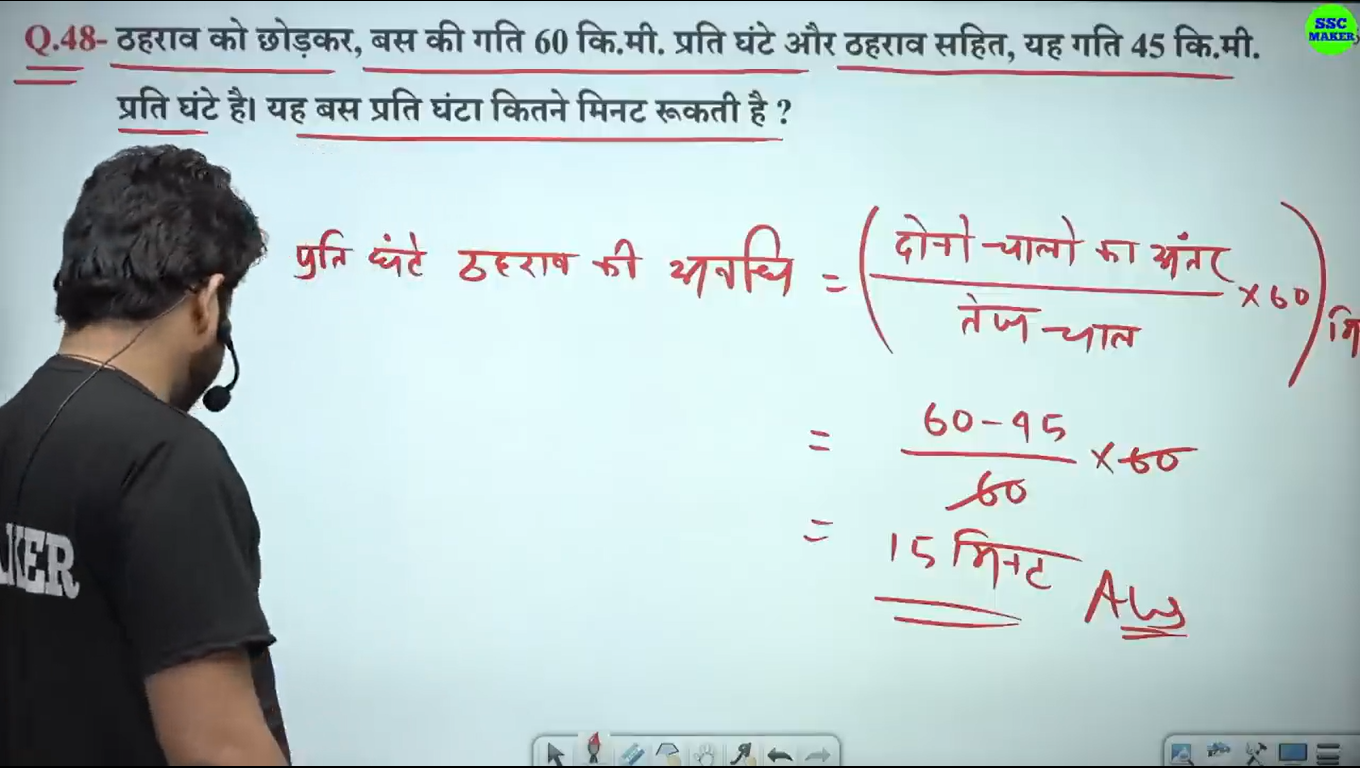 SSC
MAKER
Q.48- ठहराव को छोड़कर, बस की गति 60 कि.मी. प्रति घंटे और ठहराव सहित, यह गति 45 कि.मी.
प्रति घंटे है। यह बस प्रति घंटा कितने मिनट रूकती है ?
प्रति घंटे ठहराव की अवधि = (दोनो चालो का अंतर / तेज चाल × 60) मि
= 60-45 / 60 × 60
= 15 मिनट Ans
KER